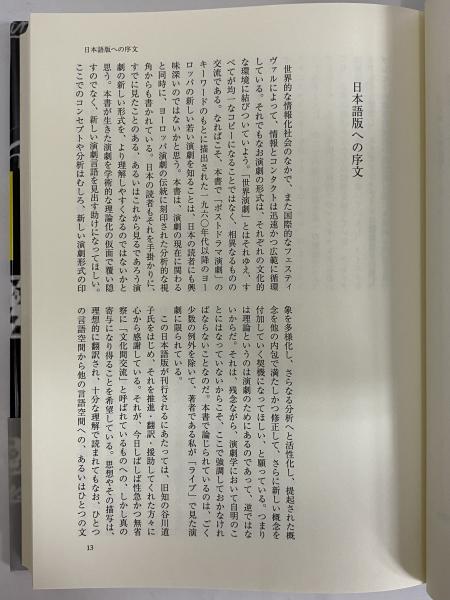 日本語版への序文
日本語版への序文
世界的な情報化社会のなかで、また国際的なフェスティ
ヴァルによって、情報とコンタクトは迅速かつ広範に循環
している。それでもなお演劇の形式は、それぞれの文化的
な環境に結びついていよう。「世界演劇」とはそれゆえ、す
べてが均一なコピーになることではなく、相異なるものの
交流である。なればこそ、本書で「ポストドラマ演劇」の
キーワードのもとに描出された一九六〇年代以降のヨー
ロッパの新しい若い演劇を知ることは、日本の読者にも興
味深いのではないかと思う。本書は、演劇の現在に関わる
と同時に、ヨーロッパ演劇の伝統に刻印された分析的な視
角からも書かれている。日本の読者もそれを手掛かりに、
すでに見たことのある、あるいはこれから見るであろう演
劇の新しい形式を、より理解しやすくなるのではないかと
思う。本書が生きた演劇を学術的な理論化の仮面で覆い隠
すのでなく、新しい演劇言語を見出す助けになってほしい。
ここでのコンセプトや分析はむしろ、新しい演劇形式の印
象を多様化し、さらなる分析へと活性化し、提起された概
念を他の内包で満たしかつ修正して、さらに新しい概念を
付加していく契機になってほしい、と願っている。つまり
は理論というのは演劇のためにあるのであって、逆ではな
いからだ。それは、残念ながら、演劇学において自明のこ
とにはなっていないからこそ、ここで強調しておかなけれ
ばならないことなのだ。本書で論じられているのは、ごく
少数の例外を除いて、著者である私が「ライブ」で見た演
劇に限られている。
この日本語版が刊行されるにあたっては、旧知の谷川道
子氏をはじめ、それを推進・翻訳・援助してくれた方々に
心から感謝している。それが、今日しばしば性急かつ無省
察に「文化間交流」と呼ばれているものへの、しかし真の
寄与になり得ることを希望している。思想やその描写は、
理想的に翻訳され、十分な理解で読まれてもなお、ひとつ
の言語空間から他の言語空間への、あるいはひとつの文
13